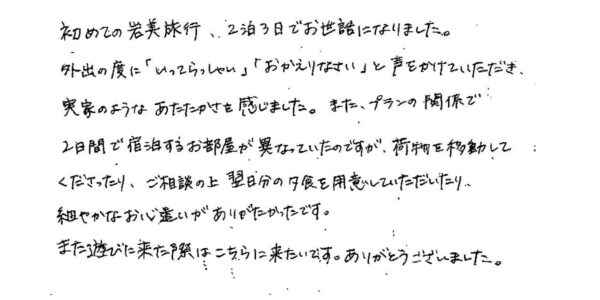 初めての岩美旅行、2泊3日でお世話になりました。
外出の度に「いってらっしゃい」「おかえりなさい」と声をかけていただき、
実家のようなあたたかさを感じました。また、プランの関係で
2日間で宿泊するお部屋が異なっていたのですが、荷物を移動して
くださったり、ご相談の上翌日分の夕食を用意していただいたり、
細やかなお心遣いがありがたかったです。
また遊びに来た際はこちらに来たいです。ありがとうございました。